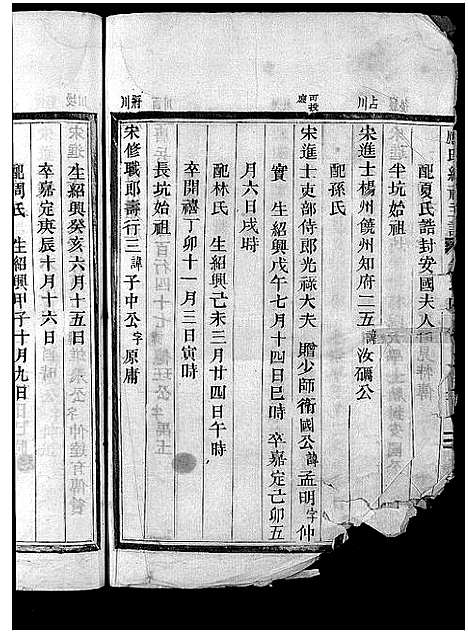 配夏氏誥封安國夫人
半坑始祖
占川
宋進士楊州饒州知府二五諱汝礪公
配孫氏
可投應
宋進士吏部侍郎光祿大夫 贈少師衛國公諱孟明字仲
實 生紹興戊午七月十四日巳時 卒嘉定己卯五
月六日戌時
配林氏 生紹興己未三月廿四日午時
卒開禧丁卯十一月三日寅時
長坑始祖
宋修職郎壽行三諱子中公字原庸
生紹興癸亥六月十五日
卒嘉定庚辰十月十六日
配周氏 生紹興甲子十月九日